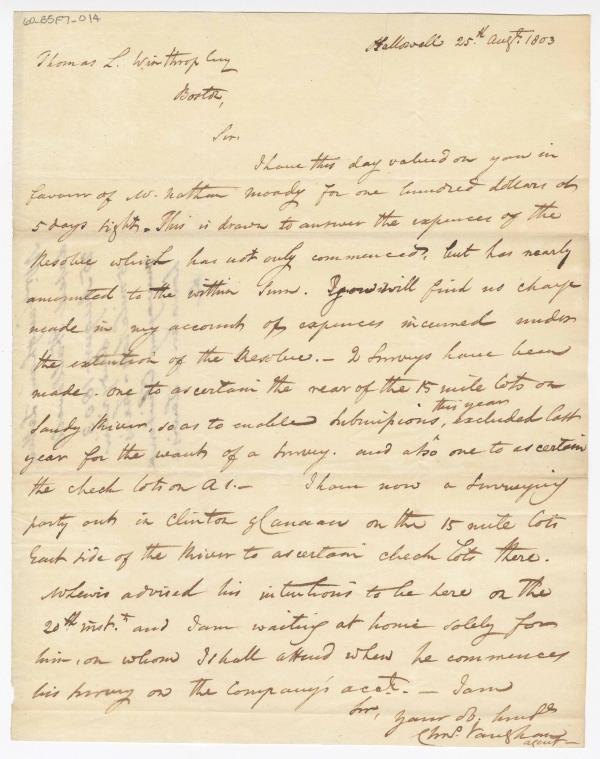 60.B5F7-014
Hallowell 25.th Augt. 1803
Thomas L. Winthrop Esq
Boston,
Sir.
I have this day valued on you in
favour of Mr. Nathan Moody for one hundred dollars at
5 days sight. This is drawn to answer the expences of the
Resolve which has not only commenced, but has nearly
amounted to the within sum. You will find no charge
made in my account of expences incurred under
the extention of the Resolve. – 2 Surveys have been
made. one to ascertain the rear of the 15 mile lots on
Sandy River, so as to enable Subscriptions,
this year
excluded last
year for the want of a Survey. and also one to ascertain
the check lots on A 1. – I have now a Surveying
party out in Clinton & Canaan on the 15 mile lots
East side of the River to ascertain check lots there.
Mr Lewis advised his intentions to be here on the
20th inst.t and I am waiting at home solely for
him, on whom I shall attend when he commences
his survey on the Company's acct. – I am
Sir, your ob. servt.
Chas. Vaughan
agent –